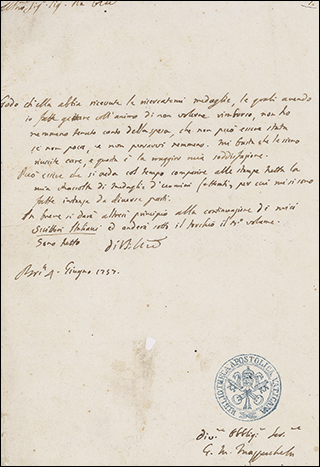 Godo ch'ella abbia ricevute le ricercatemi medaglie, le quali avendo
io fatte gettare coll'animo di non volerne rimborso, non ho
nemmeno tenuto conto della spesa, che non può essere stata
se non poca, e non pensarvi nemmeno. Mi basta che le sieno
riuscite care, e questa è la maggior mia soddisfazione.
Può essere che si veda col tempo comparire alle stampe tutta la
mia Raccolta di Medaglie d'uomini letterati, per cui me si sono
fatte instanze da diverse parti.
In breve si darà altresì principio alla continuazione de' miei
Scrittori Italiani ed anderà sotto il torchio il volume.
Sono tutto di V.
4. Giugno 1757.
BIBLIOTHECA APOSTOLICA VATICANA
G. M. Mazzuchelli